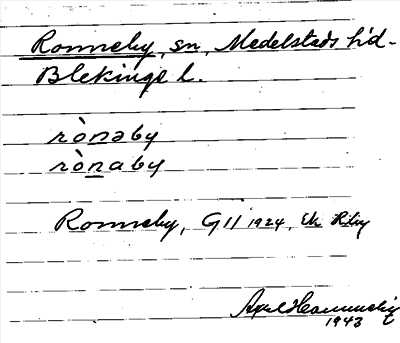 Ronneby, sn, Medelstads hd.
Blekinge l.
rònəby
rònaby
Ronneby, GII 1924, Ek Rby
Axel
1943